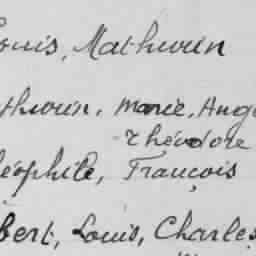 ouis, Mathurin
thurin, Marie, Aug
Théodore
éophile, François
bert, Louis, Charles